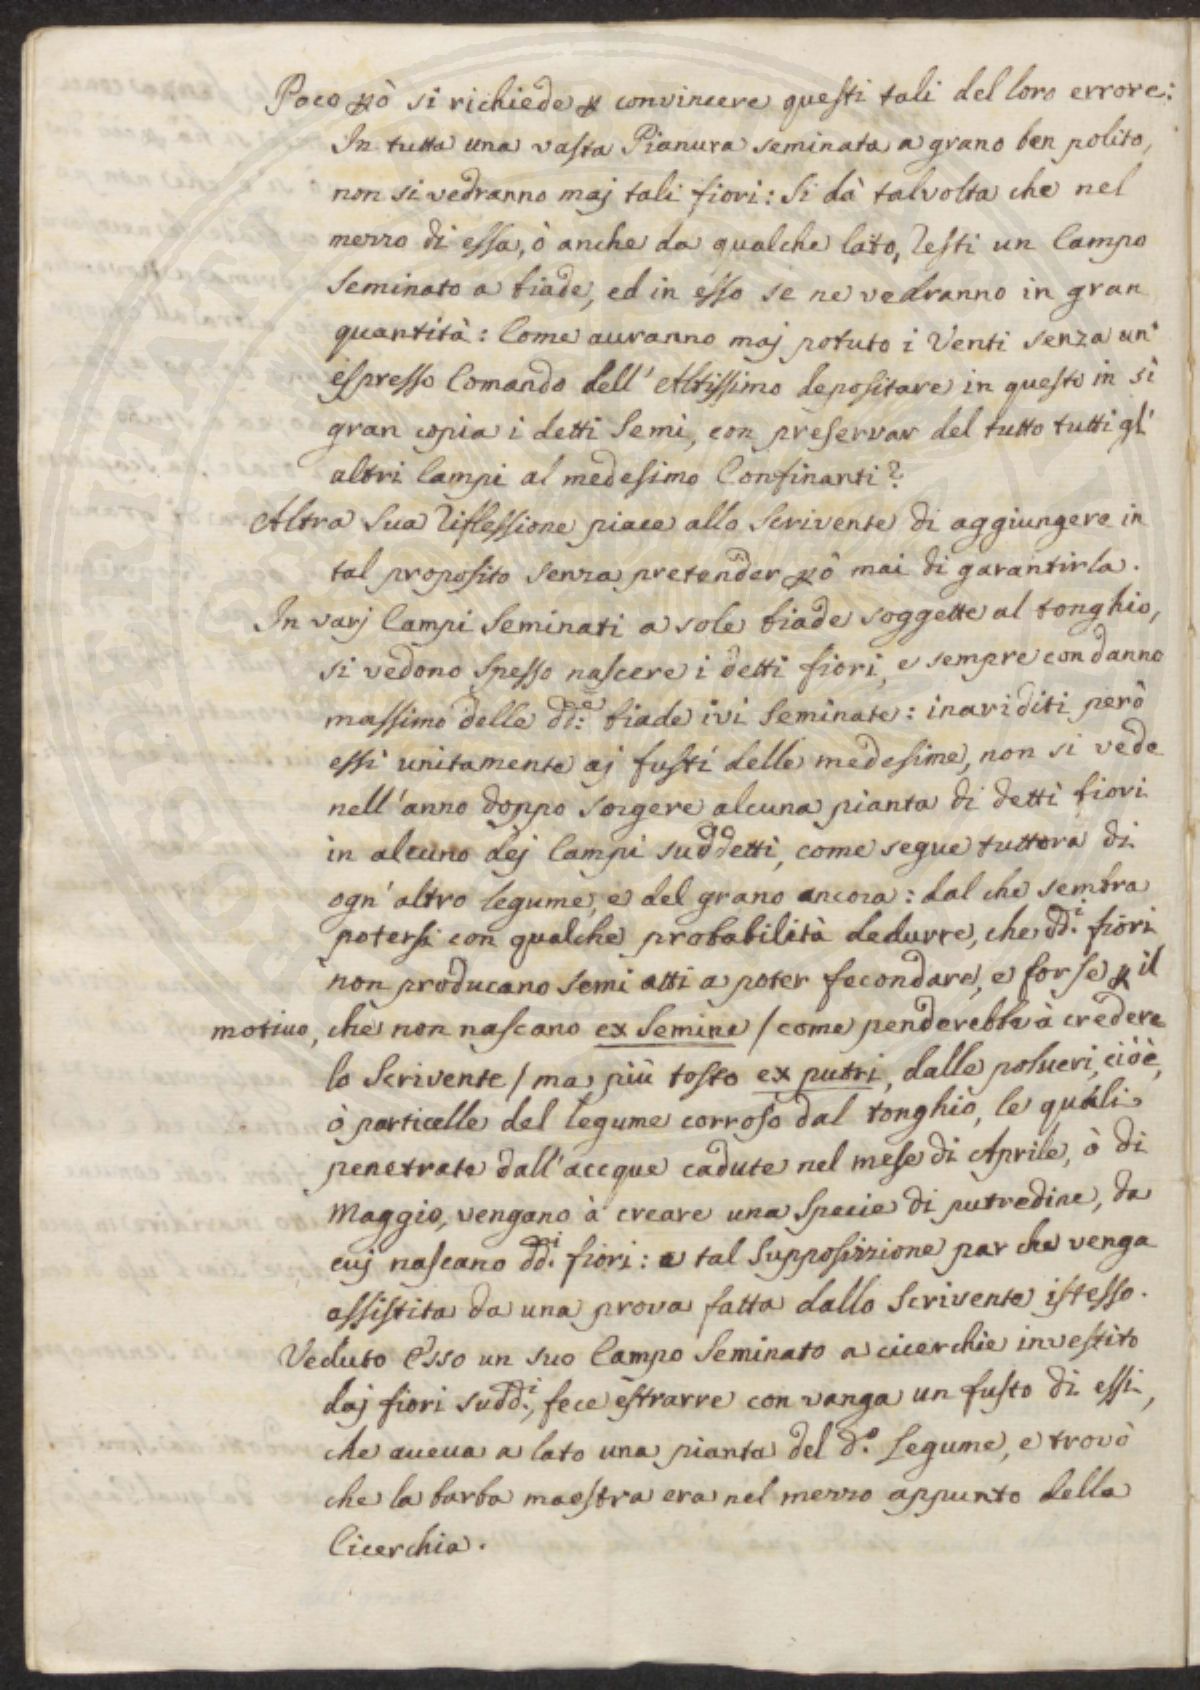 Poco ꝑò si richiede ꝑ convincere questi tali del loro errore:
In tutta una vasta Pianura seminata a grano ben polito,
non si vedranno maj tali fiori: Si dà talvolta che nel
mezzo di essa, ò anche da qualche lato, resti un Campo
Seminato a biade, ed in esso se ne vedranno in gran
quantità: Come auranno maj potuto i Venti senza un'
espresso Comando dell'Altissimo depositare in questo in sì
gran copia i detti Semi, con preservar del tutto tutti gl'
altri Campi al medesimo Confinanti?
Altra sua riflessione piace allo Scrivente di aggiungere in
tal proposito senza pretender ꝑò mai di garantirla.
In varj Campi Seminati a sole biade soggette al tonghio,
si vedono spesso nascere i detti fiori, e sempre con danno
massimo delle dd:e biade ivi Seminate: inariditi però
essi unitamente aj fusti delle medesime, non si vede
nell'anno doppo sorgere alcuna pianta di detti fiori
in alcuno dej Campi suddetti, come segue tuttora di
ogn'altro legume, e del grano ancora: dal che sembra
potersi con qualche probabilità dedurre, che dd.i fiori
non producano semi atti a poter fecondare, e forse ꝑ il
motiuo, che non nascano ex Semine / come penderebbe à credere
lo Scrivente / ma più tosto ex putri, dalle polueri, cioè,
ò particelle del legume corroso dal tonghio, le quali
penetrate dall'acque cadute nel mese di Aprile, ò di
Maggio, vengano à creare una Specie di putredine, da
cuj nascano dd.i fiori: e tal Supposizzione par che venga
assistita da una prova fatta dallo Scrivente istesso.
Veduto Esso un suo Campo Seminato a cicerchie investito
daj fiori sudd.i, fece estrarre con vanga un fusto di essi,
che aueua a lato una pianta del d.o Legume, e trovò
che la barba maestra era nel mezzo appunto della
Cicerchia.